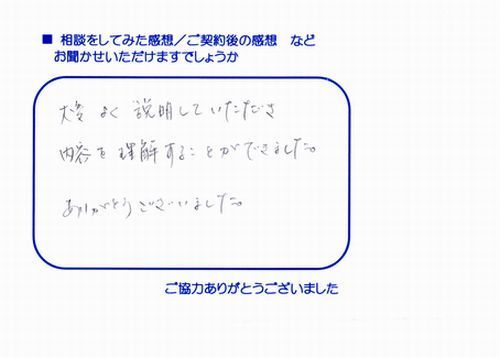 ■ 相談をしてみた感想／ご契約後の感想 など
お聞かせいただけますでしょうか
大変 よく 説明していただき
内容を 理解することができました。
ありがとうございました。
ご協力ありがとうございました